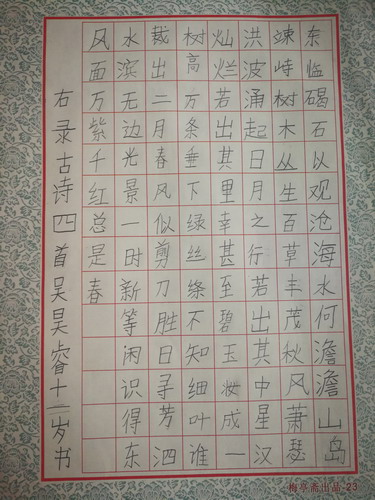 东临碣石以观沧海水何澹澹山岛
竦峙树木丛生百草丰茂秋风萧瑟
洪波涌起日月之行若出其中星汉
灿烂若出其里幸甚至碧玉妆成一
树高万条垂下绿丝绦不知细叶谁
裁出二月春风似剪刀胜日寻芳泗
水滨无边光景一时新等闲识得东
风面万紫千红总是春
右录古诗四首吴昊睿十二岁书
梅亭斋出品-23